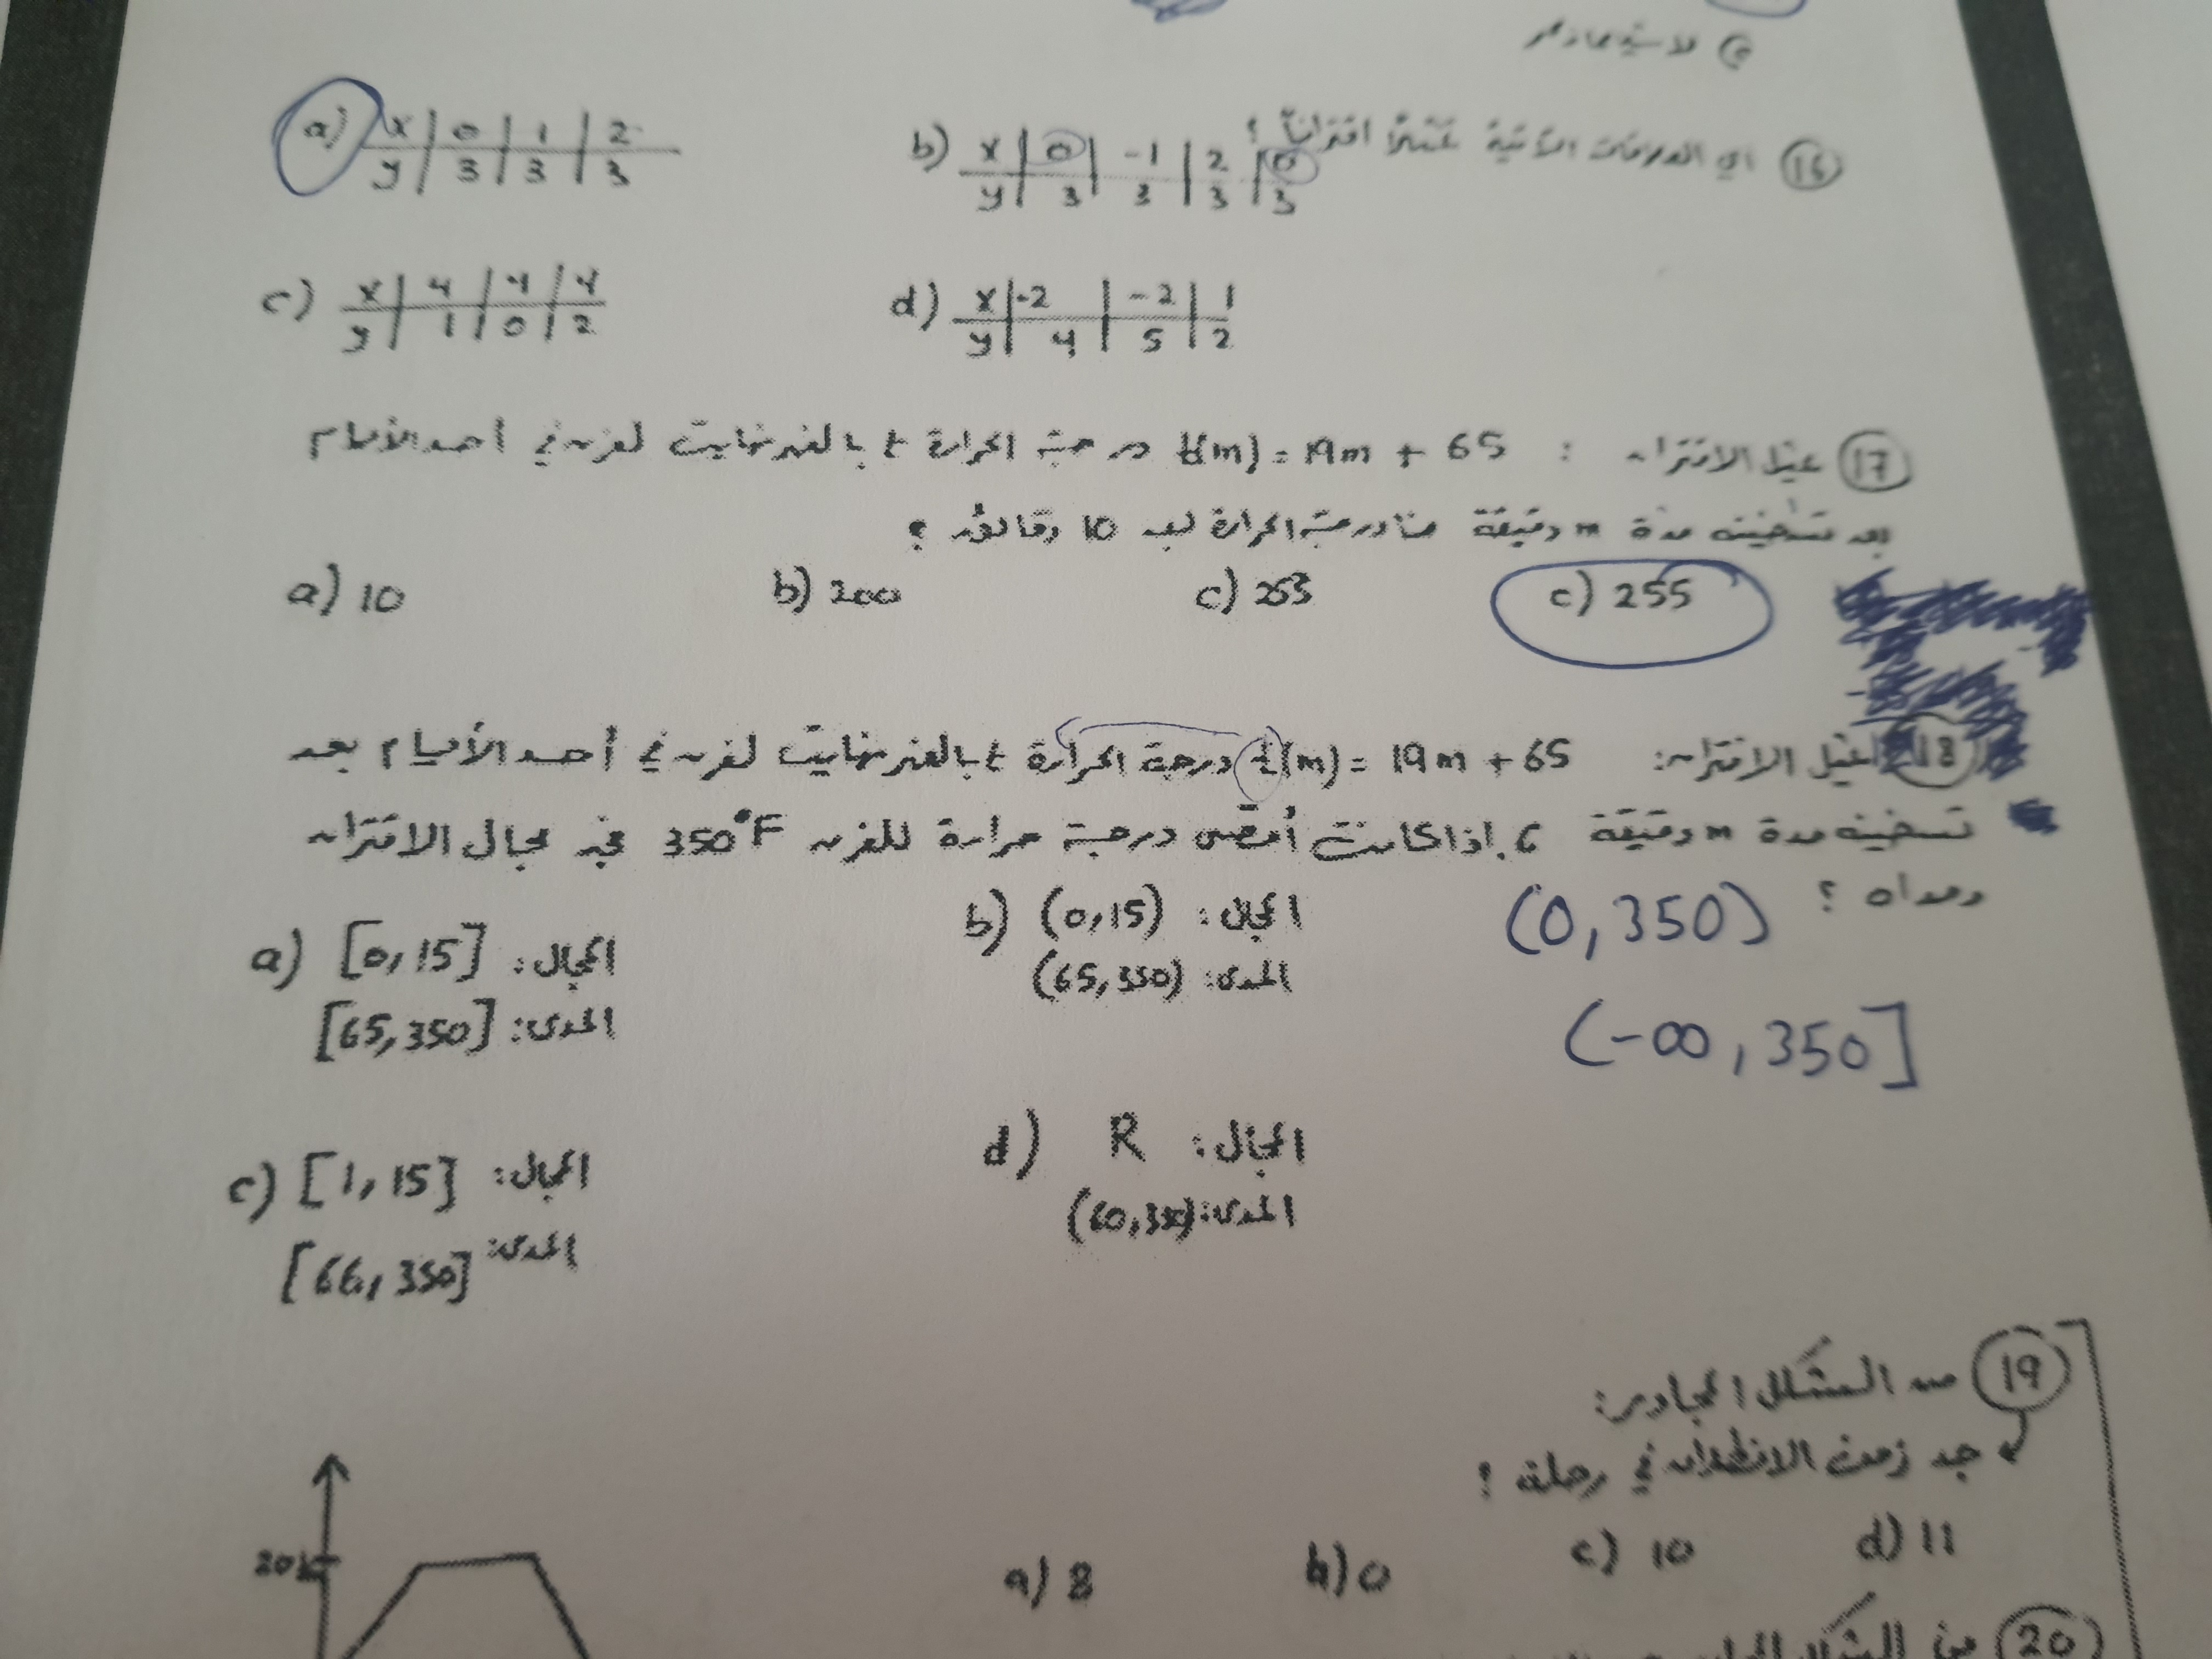 16 أي العلاقات الآتية تمثل اقتراناً ؟
a) x | 0 | 1 | 2
y | 3 | 3 | 3
b) x | 0 | -1 | 2 | 0
y | 3 | 3 | 3 | 3
c) x | 4 | 4 | 4
y | 1 | 0 | 2
d) x | -2 | -2 | 1
y | 4 | 5 | 2
17 يمثل الاقتران : t(m) = 19m + 65 درجة الحرارة t بالفهرنهايت لفرن في أحد الأيام
بعد تسخينه مدة m دقيقة ما درجة الحرارة بعد 10 دقائق ؟
a) 10 b) 200 c) 253 c) 255
18 يمثل الاقتران: t(m) = 19m + 65 درجة الحرارة t بالفهرنهايت لفرن في أحد الأيام بعد
تسخينه مدة m دقيقة 6. إذا كانت أقصى درجة حرارة للفرن 350°F فجد مجال الاقتران
ومداه ؟
(0, 350)
(-∞, 350]
a) [0, 15] المجال:
[65, 350] المدى:
b) (0, 15) المجال:
(65, 350) المدى:
c) [1, 15] المجال:
[66, 350] المدى:
d) R المجال:
(60, 350) المدى:
19 من الشكل المجاور:
جد زمن الانطلاق في رحلة ؟
a) 8 b) 0 c) 10 d) 11
20k
20 من الشكل